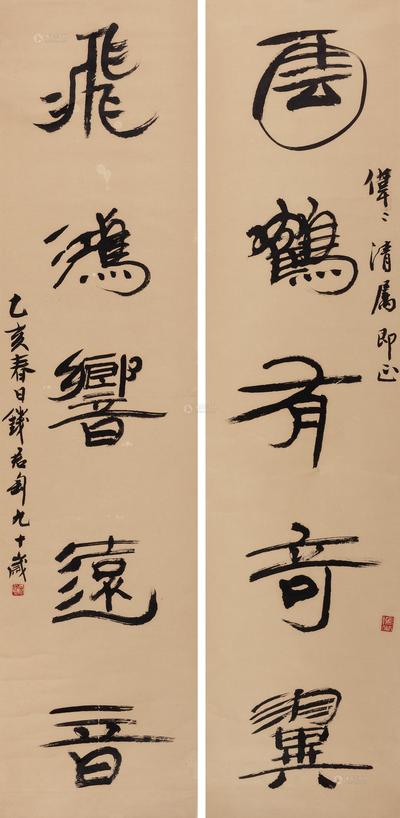 偉偉清属即正
雲鶴有奇翼
飛鴻響遠音
乙亥春日錢君匋九十歲